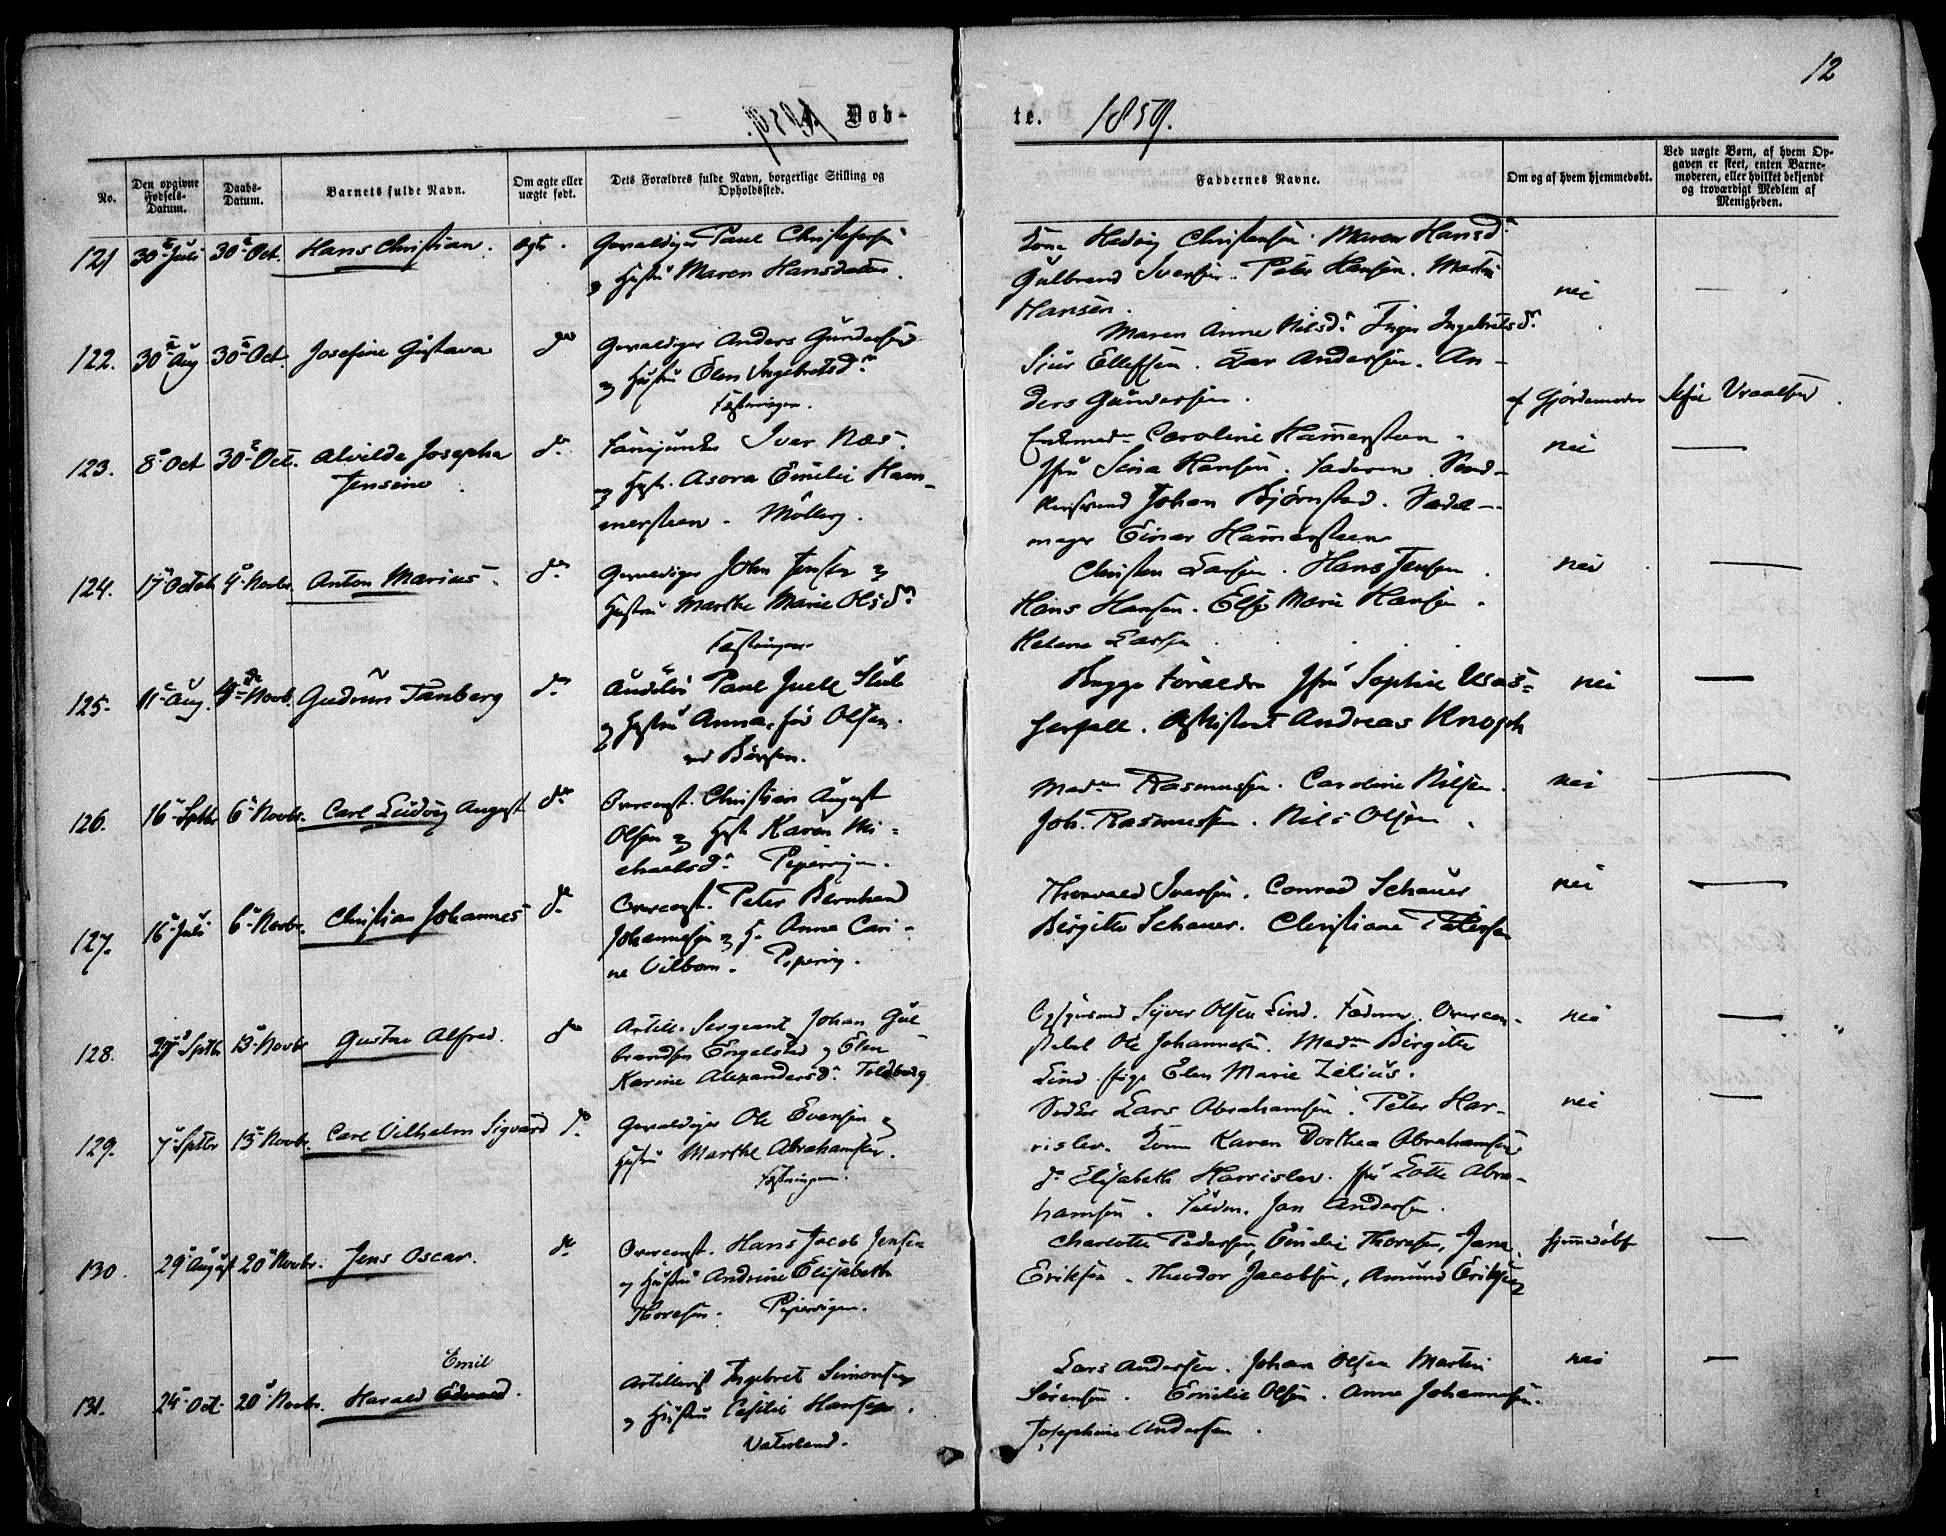 12
1859. Døb-
te. 1859.
No.
Den opgivne Fødsels-Datum.
Daabs-Datum.
Barnets fulde Navn.
Om ægte eller uægte født.
Dets Forældres fulde Navn, borgerlige Stilling og Opholdssted.
Faddernes Navne.
Om og af hvem hjemmedøbt.
Ved uægte Børn, af hvem Op-
gaven er skeet, enten Barne-
moderen, eller hvilket bekjendt
og troværdigt Medlem af
Menigheden.
121 30 Juli 30 Oct. Hans Christian. ægte. Gevaldiger Paul Christofersen
Hustru Maren Hansdatter.
Kone Hedvig Christensen. Maren Hansd.
Gulbrand Iversen. Peter Hansen. Martin
Hansen. nei —
122. 30 Aug 30 Oct. Josefine Gustava do Gevaldiger Anders Gundersen
Hustru Elen Ingebretsd.
Fæstningen.
Maren Anne Nilsd. Inger Ingebretsd.
Siur Ellefsen. Lars Andersen. An-
ders Gundersen. af Gjordemoder Vraalsen.
123. 8 Oct 30 Oct. Alvilde Josepha do Fanejunker Iver Næs
Jensine Asora Emilie Ham-
mersteen. Møllerg.
Caroline Hamersteen
Jfr Sina Hansen. Faderen.
Johan Bjørnstad. Sadel-
mager Einar Hamersteen nei —
124. 17 Octob 4 Novbr Anton Marius. do Gevaldiger John Jensen
Hustru Marthe Marie Olsd.
Fæstningen.
Christen Larsen. Hans Jensen.
Hans Hansen. Else Marie Hansen.
Helene Larsen nei —
125. 11 Aug. Novb. Gudrun Tanberg do Auditør Paul Juell
Hustru Anna, før Olsen.
ved Børsen.
Begge Forældre Jfr Sophie
Assistent Andreas Knoph nei —
126. 16 Septbr 6 Novbr. Carl Ludvig August do Overconst. Christian August
Olsen og Hust. Karen Mi-
chaelsd. Pipervigen.
Mad. Rasmussen. Caroline Nilsen.
Joh. Rasmussen. Nils Olsen. nei —
127. 16 Juli 6 Novbr. Christian Johannes do Overconst. Peter Bernhard
Johannesen og H. Anne Cari-
ne Vilbom. Pipervig.
Thorvald Iversen. Conrad Schauer
Birgitte Schauer. Christiane Petersen nei —
128. Septbr 13 Novbr Gustav Alfred. do Artill. Sergeant Johan Gul
brandsen Engelstad og Elen
Karine Alexandersd. Toldbodg
Syver Olsen Lind. Faderen. Overcon-
stabel Ole Johannesen. Mad. Birgitte
Lind. Pige Elen Marie Zelius. nei —
129. 7 Septbr 13 Novbr. Carl Vilhelm Sigvard do Gevaldiger Ole Evensen
Hustru Marthe Abrahamsen.
Fæstningen.
Lars Abrahamsen. Peter Har-
rislev. Kone Karen Dorthea Abrahamsen
do Elisabeth Harrislev. Jfr Lotte Abra-
hamsen. Jan Andersen. nei —
130. 29 August 20 Novbr. Jens Oscar. do Overconst. Hans Jacob Jensen
og Hustru Andrine Elisabeth
Thoresen. Pipervigen.
Charlotte Pedersen, Emilie Thoresen, Jana
Eriksen. Theodor Jacobsen, Amund Eriksen hjemmedøbt —
131. 25 Oct. 20 Novbr. Harald Edvard Emil. Artillerist Ingebret Simonsen
og Hustru Cesilie Hansen.
Vaterland.
Lars Andersen. Johan Olsen Martin
Sørensen. Emilie Olsen. Anne Johannesen.
Josephine Andersen. nei —